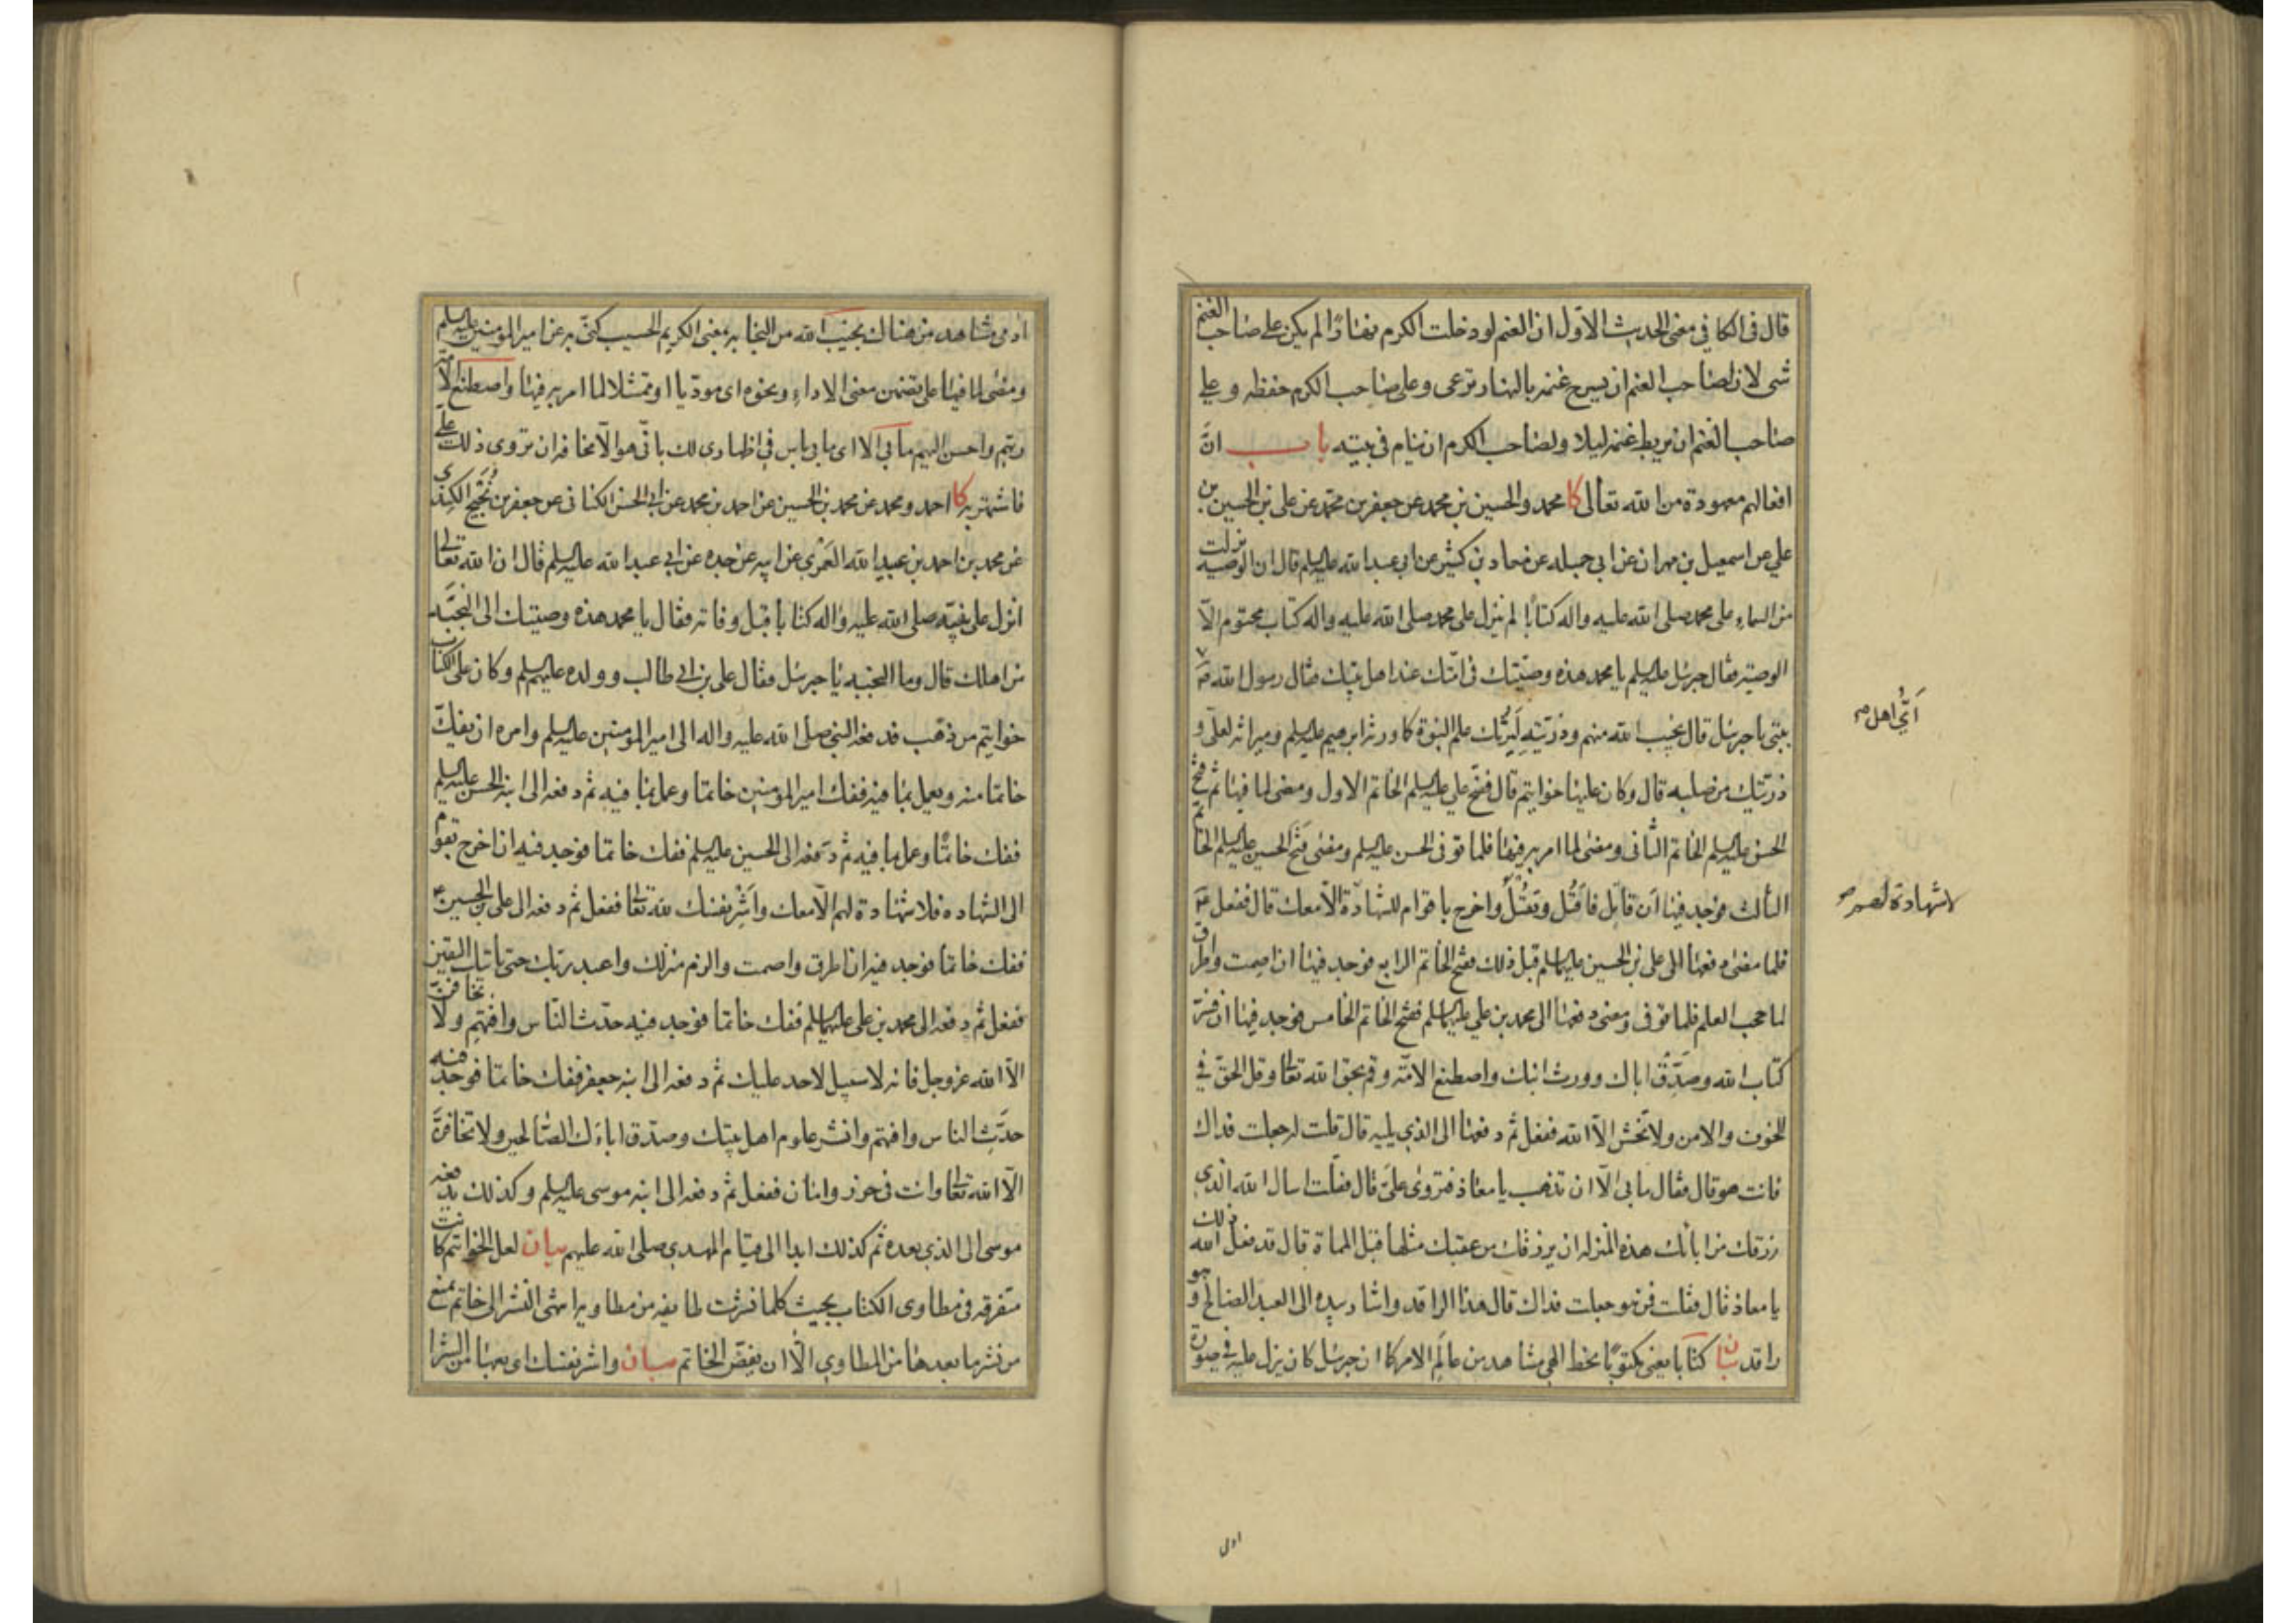 قال فى الكافي فى معنى الحديث الاوّل ان الغنم لو دخلت الكرم نهارًا لم يكن على صاحب الغنم
شى لان لصاحب الغنم ان يسرح غنمه بالنهار ترعى وعلى صاحب الكرم حفظه وعلى
صاحب الغنم ان يربط غنمه ليلا ولصاحب الكرم ان ينام فى بيته باب انّ
افعالهم معهودة من الله تعالى كا محمد والحسين بن محمد عن جعفر بن محمد عن على بن الحسين بن
علي عن اسمعيل بن مهران عن ابى جميله عن معاذ بن كثير عن ابى عبد الله عليه السلم قال ان الوصية نزلت
من السماء على محمد صلى الله عليه واله كتابًا لم ينزل على محمد صلى الله عليه واله كتاب مختوم الّا
الوصية فقال جبرئيل عليه السلم يا محمد هذه وصيّتك فى امّتك عند اهل بيتك فقال رسول الله ص
اَىُّ اهل ص
بيتى يا جبرئيل قال نجيب الله منهم وذرّيته لِيَرِثك علم النبوة كما ورثه ابرهيم عليه السلم وميراثه لعلّى و
ذرّيتك من صلبه قال وكان عليها خواتيم قال ففتح علي عليه السلم الخاتم الاول ومضى لما فيها ثم فتح
الحسن عليه السلم الخاتم الثانى ومضى لما امر به فيها فلما توفى الحسن عليه السلم ومضى فتح الحسين عليه السلم الخاتم
الثالث فوجد فيها اَن قاتِل فاقتُل وتُقتَل واخرج باقوام للشهادة الّا معك قال ففعل ص
لا شهادة لهم ص
فلما مضى دفعها الى على بن الحسين عليهما السلم قبل ذلك ففتح الخاتم الرابع فوجد فيها ان اصمت واطرق
لما حجب العلم فلما توفى ومضى دفعها الى محمد بن علي عليهما السلم ففتح الخاتم الخامس فوجد فيها ان فسّر
كتاب الله وصدّق اباك وورث ابنك واصطنع الامّة وقم بحق الله تعالى وقل الحق في
الخوف والامن ولا تخش الّا الله ففعل ثم دفعها الى الذي يليه قال قلت له جعلت فداك
فانت هو قال فقال ما بى الّا ان تذهب يا معاذ فتروى علىَّ قال فقلت اسال الله الذى
رزقك من ابائك هذه المنزله ان يرزقك من عقبك مثلها قبل المماة قال قد فعل الله ذلك
يا معاذ قال فقلت فمن هو جعلت فداك قال هذا الراقد واشار بيده الى العبد الصالح وهو
راقد بيان كتابا يعنى مكتوبًا بخط الهي مشاهد من عالَم الامر كما ان جبرئيل كان ينزل عليه فى صورة
ادمى
ادمى مشاهد من هناك نجيب الله من النجابه بمعنى الكريم الحسيب كنّى به عن امير المومنين عليه السلم
ومضى لما فيها على تضمن معنى الاداء ونحوه اى موديا او ممتثلا لما امر به فيها واصطنع الامّة
ربّهم واحسن اليهم ما بى الّا اى ما بى باس فى اظهارى لك بانّى هو الّا مخافة ان تروى ذلك على
فاشتهر به كا احمد ومحمد عن محمد بن الحسين عن احمد بن محمد عن ابى الحسن الكنانى عن جعفر بن نُجَيح الكندى
عن محمد بن احمد بن عبيد الله العَمْرى عن ابيه عن جده عن ابى عبد الله عليه السلم قال ان الله تعالى
انزل على نبيّه صلى الله عليه واله كتابا قبل وفاته فقال يا محمد هذه وصيتك الى النجبَة
من اهلك قال وما النجبه يا جبرئيل فقال على بن ابى طالب وولده عليهم السلم وكان على الكتاب
خواتيم من ذهب فدفعه النبى صلى الله عليه واله الى امير المومنين عليه السلم وامره ان يفكّ
خاتما منه ويعمل بما فيه ففك امير المومنين خاتما وعمل بما فيه ثم دفعه الى ابنه الحسن عليه السلم
ففك خاتمًا وعمل بما فيه ثم دفعه الى الحسين عليه السلم ففك خاتما فوجد فيه ان اخرج بقوم
الى الشهاده فلا شهادة لهم الّا معك واَشرِ نفسك لله تعالى ففعل ثم دفعه الى على بن الحسين ع
ففك خاتما فوجد فيه ان اطرق واصمت والزم منزلك واعبد ربك حتى ياتيك اليقين
ففعل ثم دفعه الى محمد بن على عليهما السلم ففك خاتما فوجد فيه حدّث الناس وافتهم ولا تخافنّ
الّا الله عز وجل فانه لا سبيل لاحد عليك ثم دفعه الى ابنه جعفر ففك خاتما فوجد فيه
حدّث الناس وافتهم وانشر علوم اهل بيتك وصدّق اباءك الصالحين ولا تخافنّ
الّا الله تعالى وانت فى حرز وامان ففعل ثم دفعه الى ابنه موسى عليه السلم وكذلك يدفعه
موسى الى الذي بعده ثم كذلك ابدا الى قيام المهدى صلى الله عليهم بيان لعل الخواتيم كانت
متفرقه فى مطاوى الكتاب بحيث كلما نشرت طائفه من مطاويه انتهى النشر الى خاتم يمنع
من نشر ما بعدها من المطاوى الّا ان يفضّ الخاتم بيان واشر نفسك اى بعها من الشرا